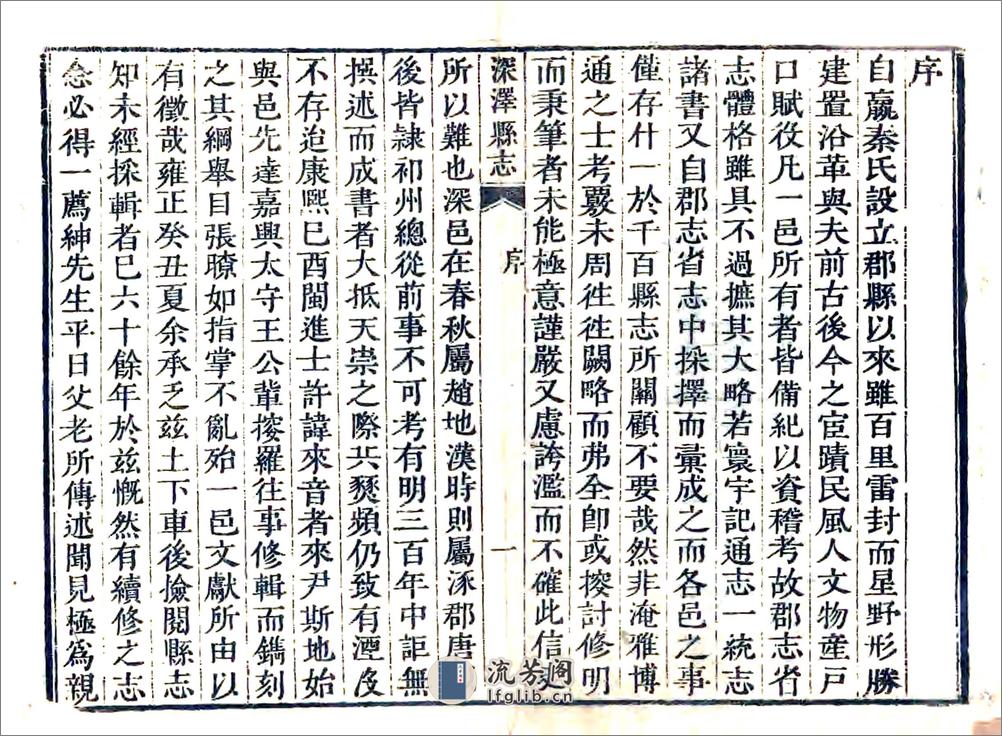 序
自嬴秦氏設立郡縣以來雖百里雷封而星野形勝
建置沿革與夫前古後今之宦蹟民風人文物產戸
口賦役凡一邑所有者皆備紀以資稽考故郡志省
志體格雖具不過摭其大略若寰宇記通志一統志
諸書又自郡志省志中採擇而彙成之而各邑之事
僅存什一於千百縣志所關顧不要哉然非淹雅博
通之士考覈未周徃徃闕略而弗全卽或搜討修明
而秉筆者未能極意謹嚴又慮誇濫而不確此信
深澤縣志
序
一
所以難也深邑在春秋屬趙地漢時則屬涿郡唐
後皆隷祁州總從前事不可考有明三百年中詎無
撰述而成書者大抵天崇之際兵燹頻仍致有湮沒
不存迨康熙己酉閩進士許諱來音者來尹斯地始
與邑先達嘉興太守王公輩搜羅往事修輯而鐫刻
之其綱舉目張瞭如指掌不亂殆一邑文獻所由以
有徵哉雍正癸丑夏余承乏兹土下車後撿閱縣志
知未經採輯者已六十餘年於兹慨然有續修之志
念必得一薦紳先生平日父老所傳述聞見極爲親
流芳阁
lfglib.cn